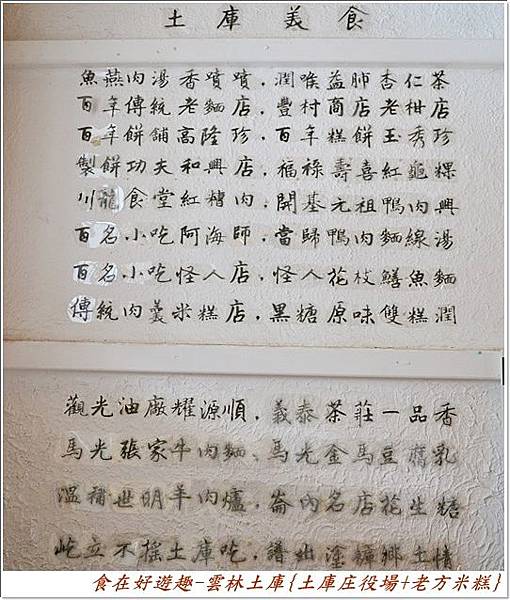 土庫美食
魚燕肉湯香噴噴．潤喉益肺杏仁茶
百年傳統老麵店．豐村商店老柑店
百年餅舖高隆珍．百年糕餅玉秀珍
製餅功夫和興店．福祿壽喜紅龜粿
川龍食堂紅糟肉．開基元祖鴨肉興
百名小吃阿海師．當歸鴨肉麵線湯
百名小吃怪人店．怪人花枝鱔魚麵
傳統肉羹米糕店．黑糖原味雙糕潤
觀光油廠耀源順．義泰茶莊一品香
馬光張家牛肉麵、馬光金馬豆腐乳
溫補世明羊肉爐．崙內名店花生糖
屹立不搖土庫吃．譜出塗鄉土情
食在好遊趣-雲林土庫{土庫庄役場+老方米糕}